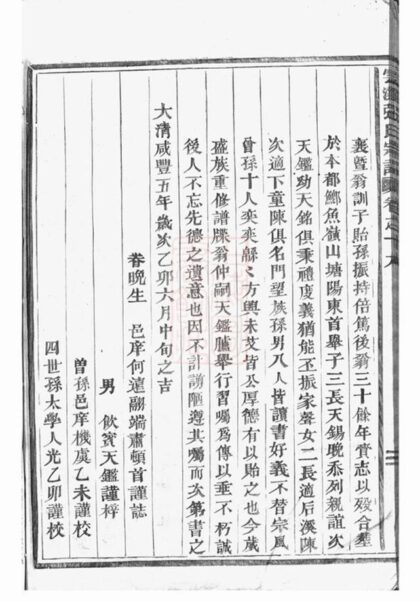 襄暨翁訓子貽孫振持倍篤後翁三十餘年賫志以歿合塟
於本都鄉魚嶺山塘陽東首舉子三長天錫晚忝列親誼次
天鑑幼天銘俱秉禮度義猶能丕振家聲女二長適后溪陳
次適下童陳俱名門望族孫男八人皆讀書好義不替宗風
曾孫十人奕奕緜緜方興未艾皆公厚德有以貽之也今歲
盛族重修譜牒翁仲嗣天鑑臚舉行習囑為傳以垂不朽誠
後人不忘先德之遺意也因不計譾陋遵其囑而次第書之
大清咸豐五年歲次乙卯六月中旬之吉
眷晚生 邑庠何蓮融端肅頓首謹誌
男 飲賓天鑑謹梓
曾孫邑庠機虞乙未謹校
四世孫太學人光乙卯謹校